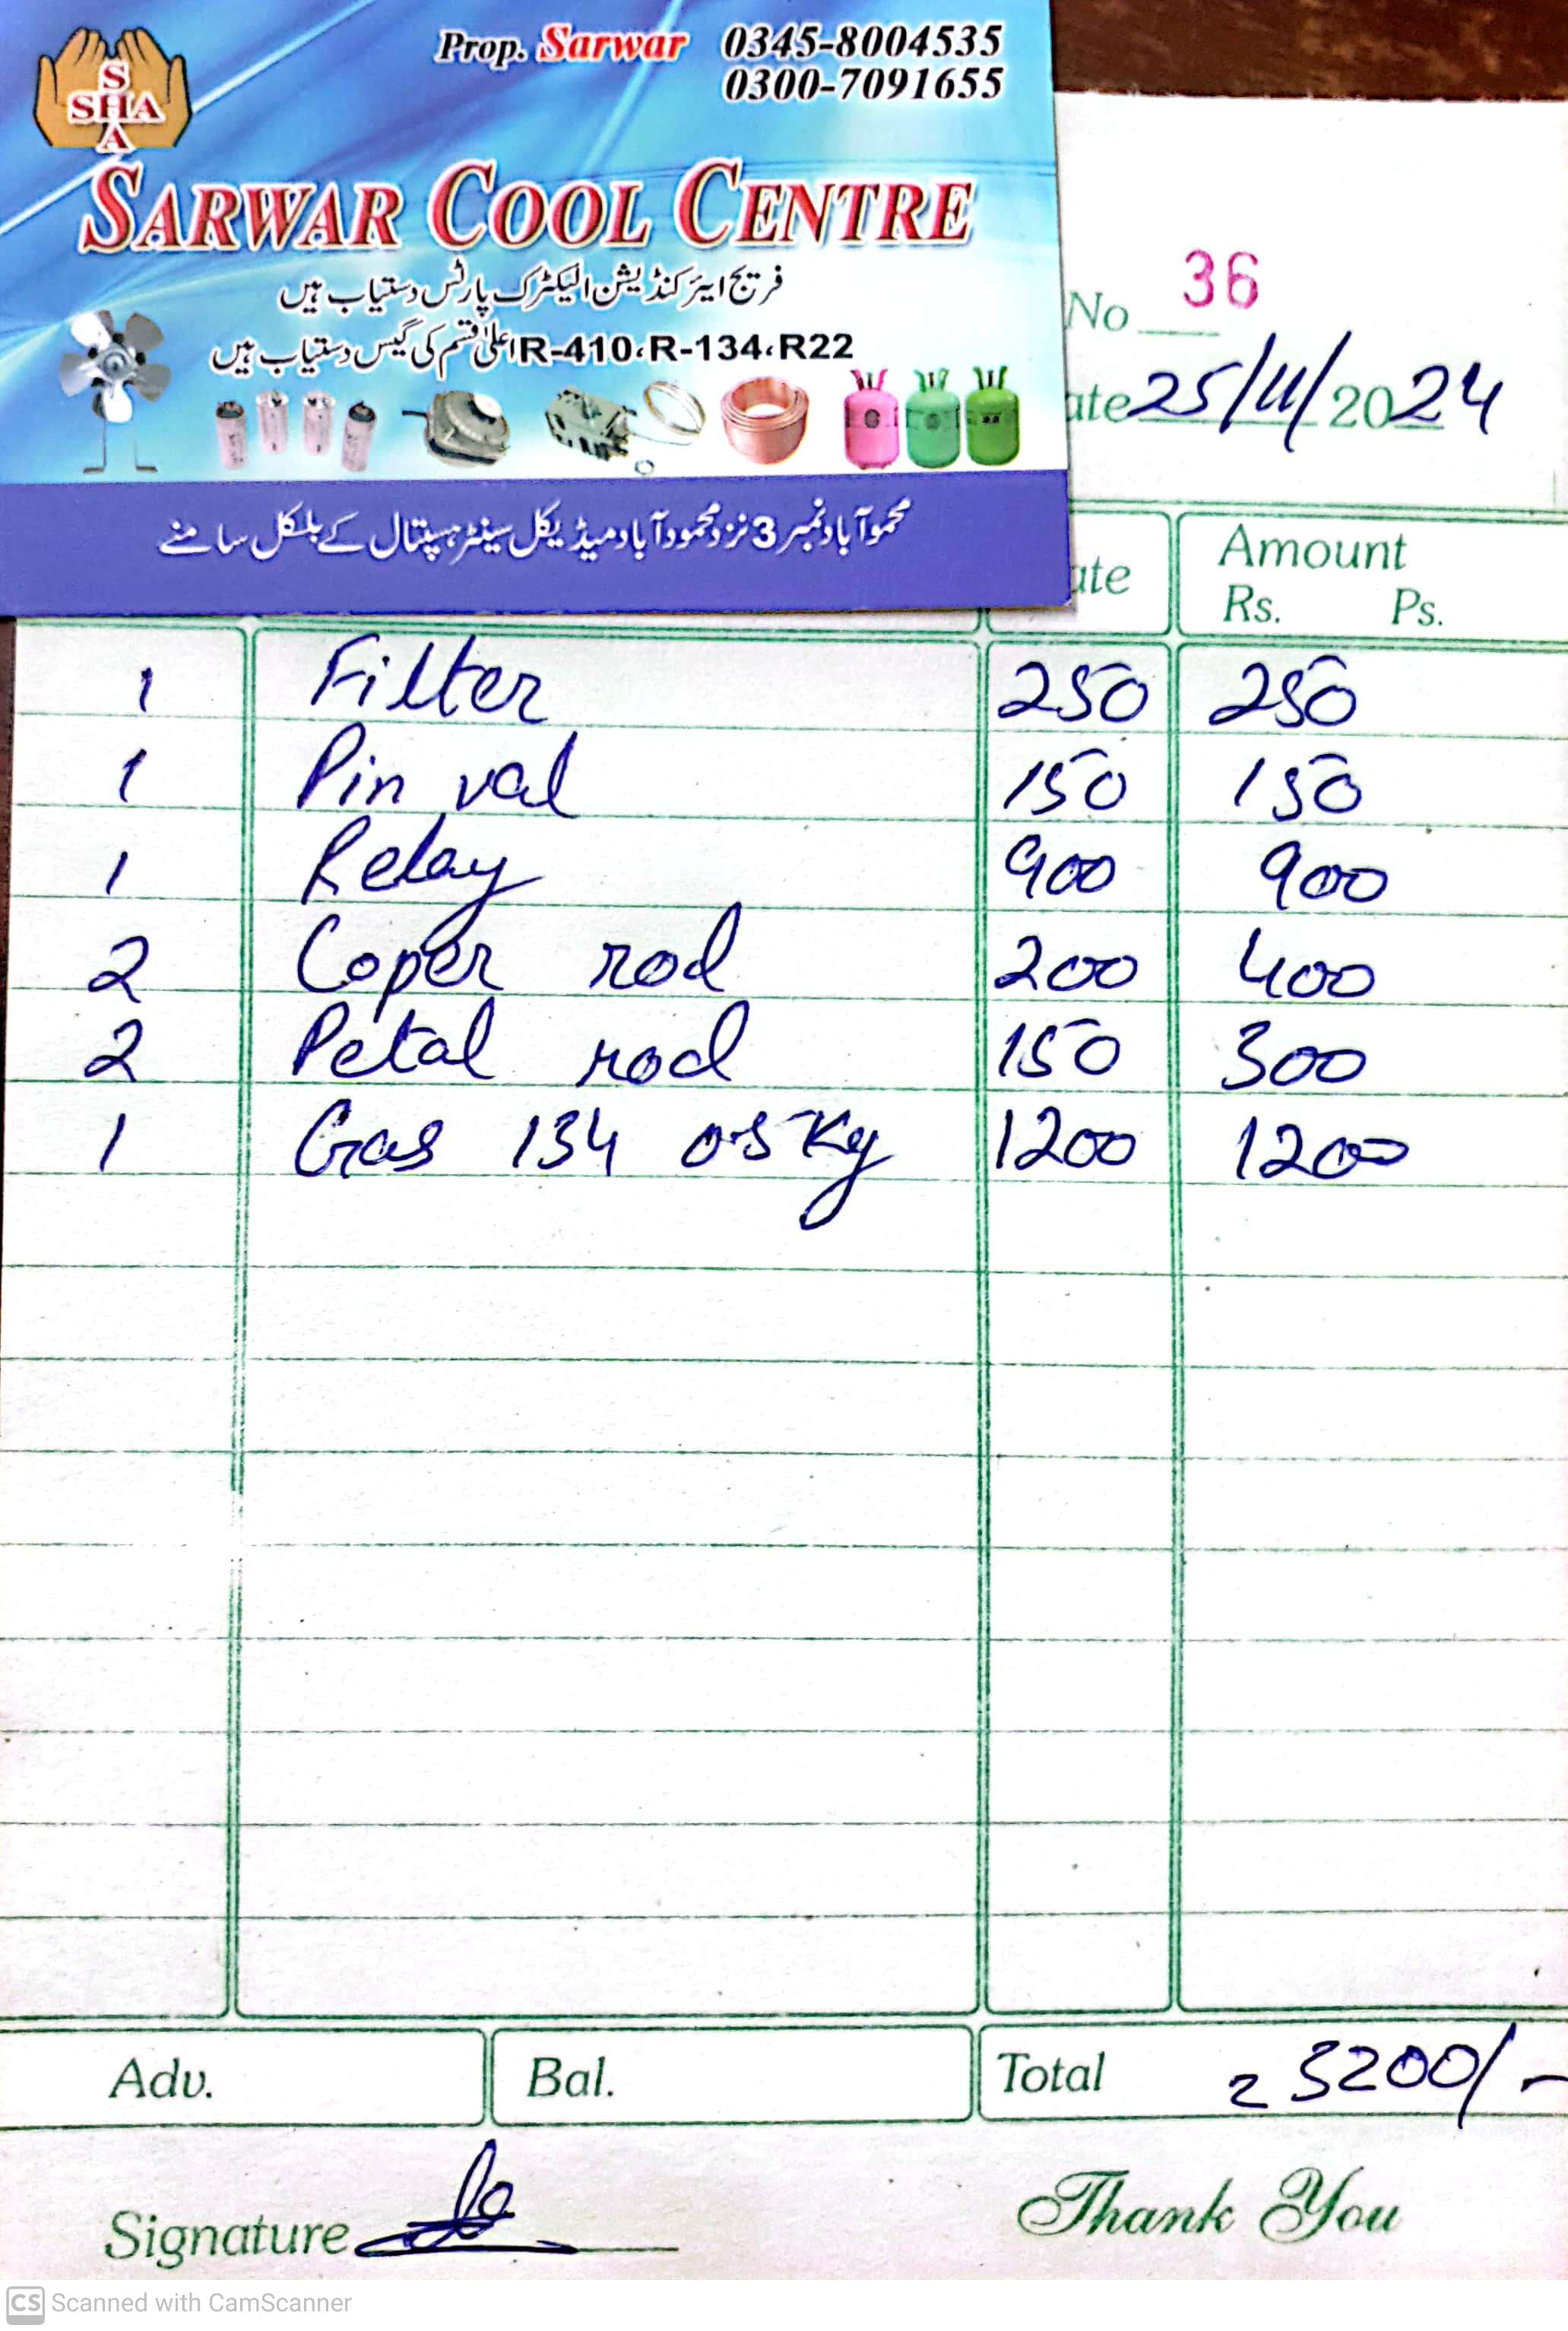 Prop. Sarwar 0345-8004535
0300-7091655
SHA
S
H
A
SARWAR COOL CENTRE
فریج ایئر کنڈیشن الیکٹرک پارٹس دستیاب ہیں
R-410، R-134، R22 اعلیٰ قسم کی گیس دستیاب ہیں
محمود آباد نمبر 3 نزد محمود آباد میڈیکل سینٹر ہسپتال کے بلکل سامنے
No 36
ate 25/11/2024
ate Amount
Rs. Ps.
1 Filter 250 250
1 Pin val 150 150
1 Relay 900 900
2 Coper rod 200 400
2 Petal rod 150 300
1 Gas 134 0.5 Kg 1200 1200
Adv. Bal. Total = 3200/-
Signature
Thank You
CS Scanned with CamScanner